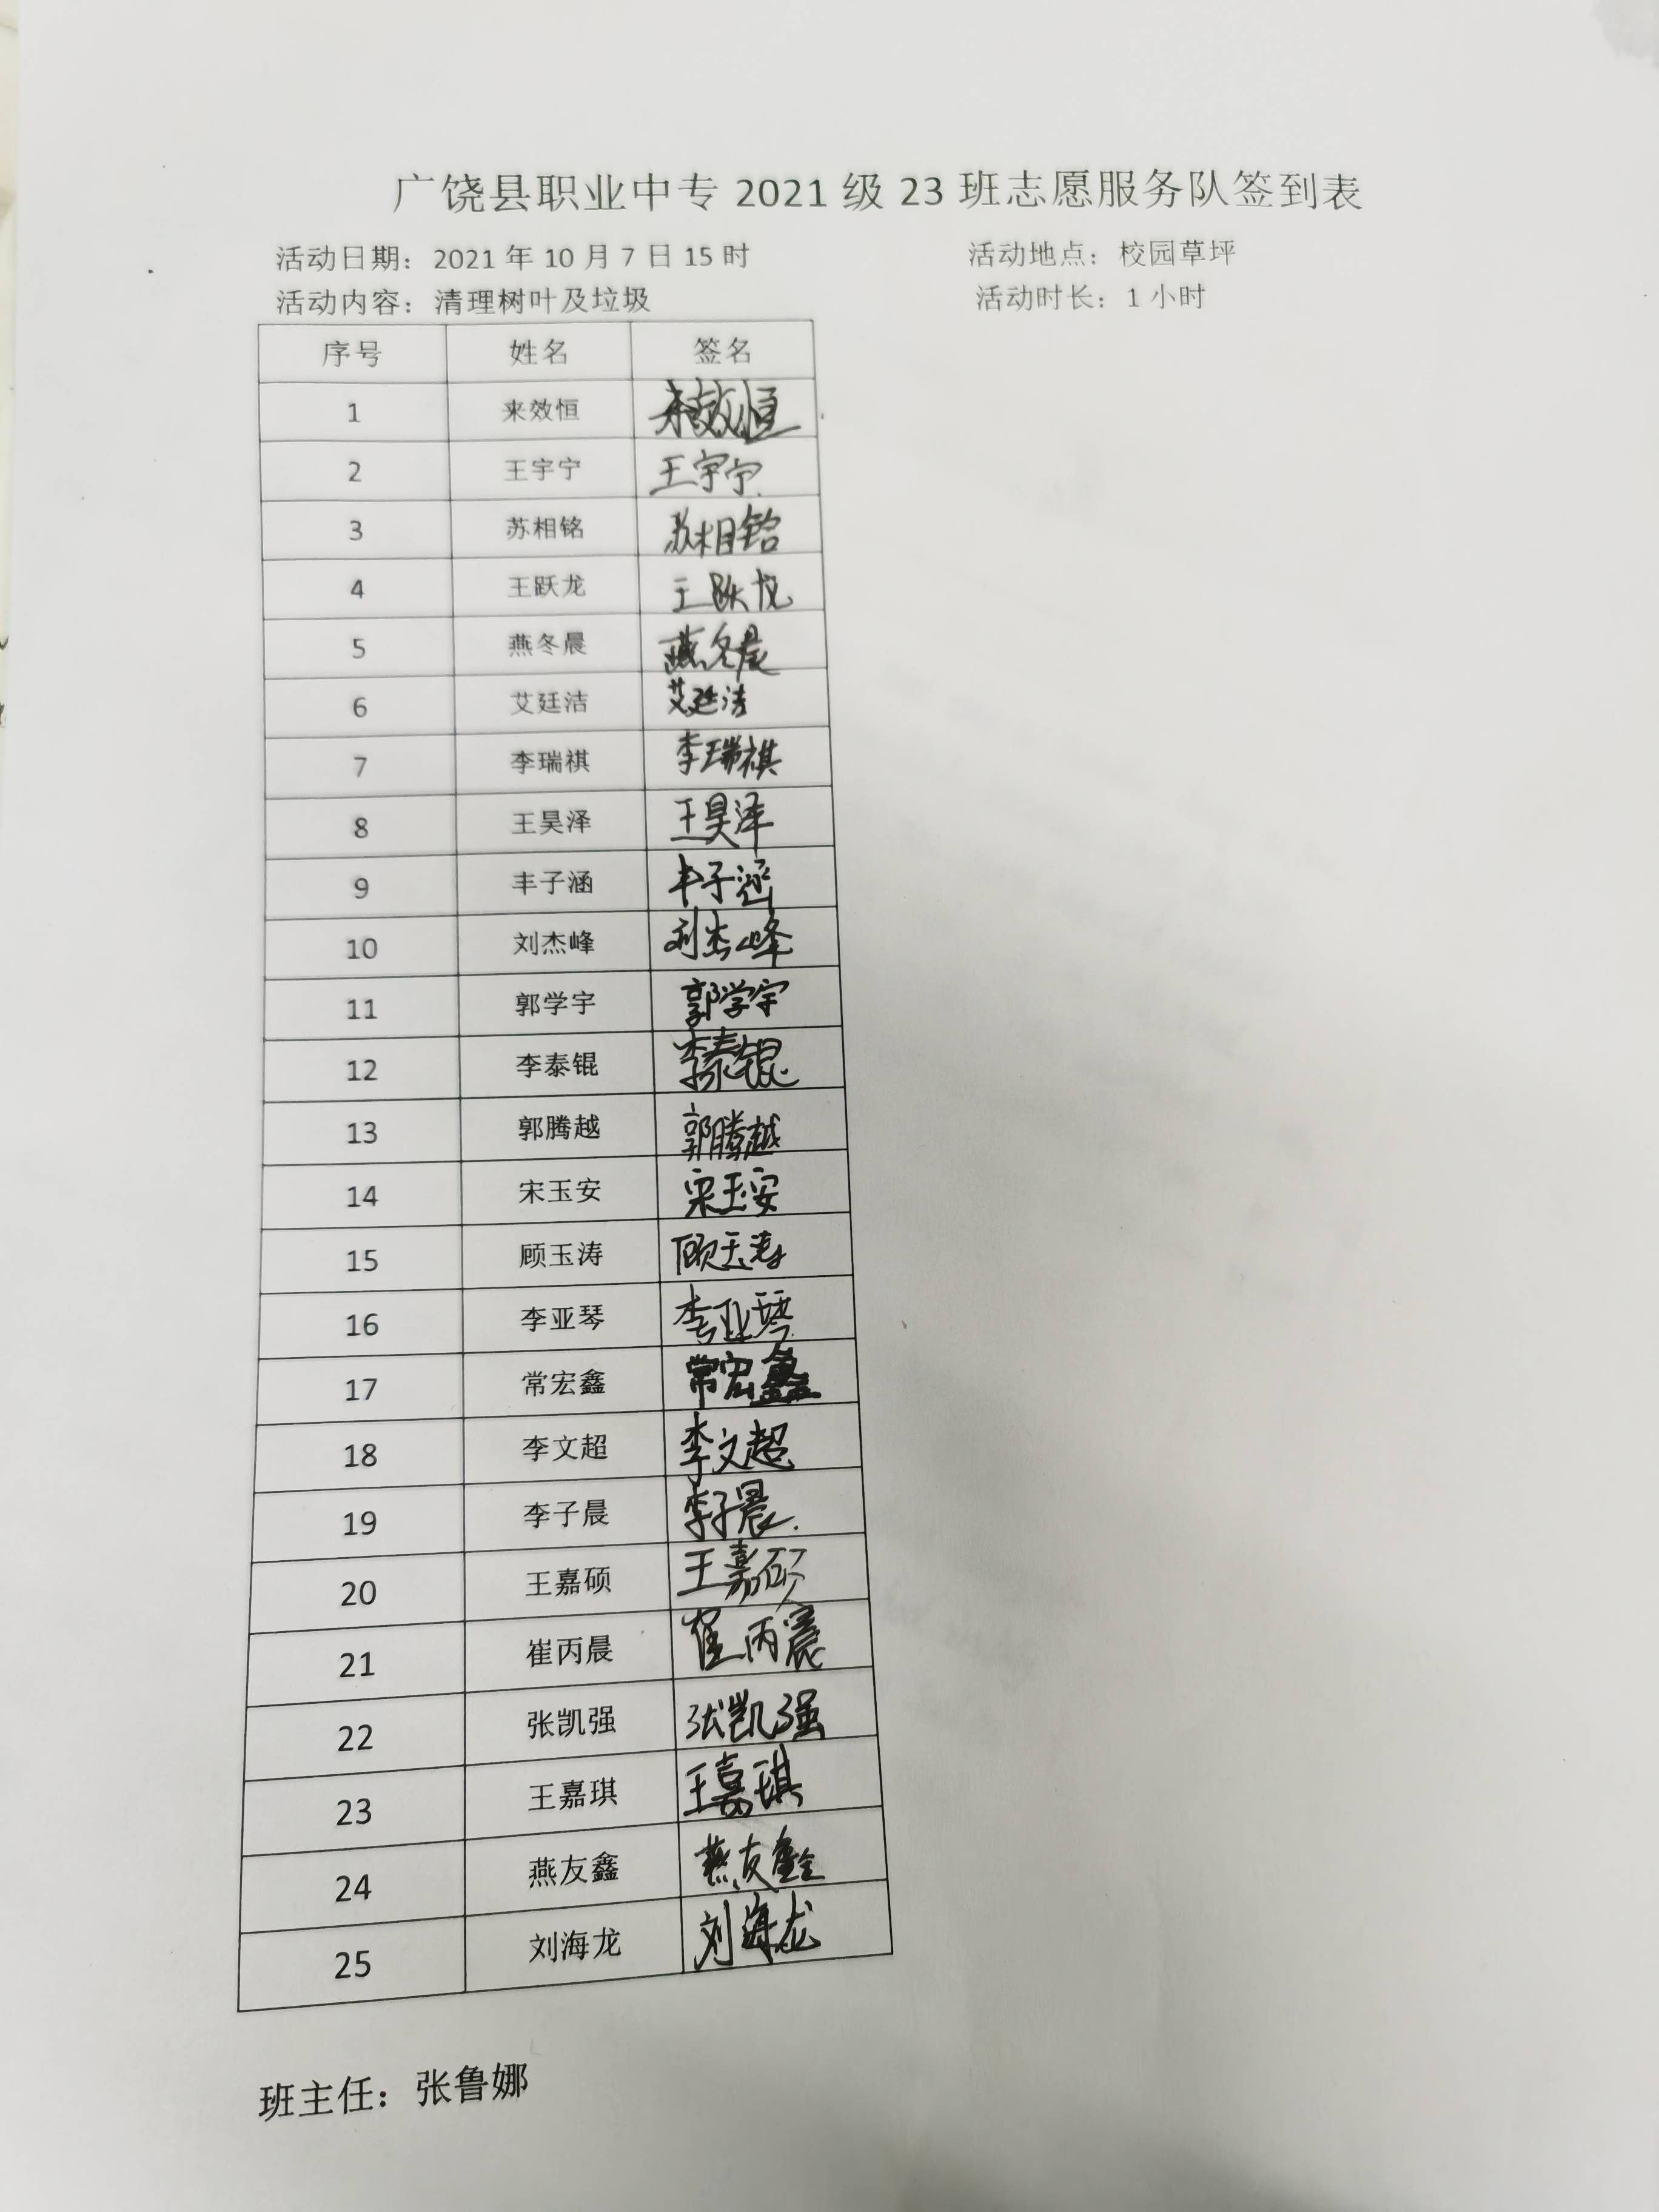 广饶县职业中专 2021 级 23 班志愿服务队签到表
活动日期：2021 年 10 月 7 日 15 时 活动地点：校园草坪
活动内容：清理树叶及垃圾 活动时长：1 小时
序号 姓名 签名
1 来效恒 来效恒
2 王宇宁 王宇宁
3 苏相铭 苏相铭
4 王跃龙 王跃龙
5 燕冬晨 燕冬晨
6 艾廷洁 艾廷洁
7 李瑞祺 李瑞祺
8 王昊泽 王昊泽
9 丰子涵 丰子涵
10 刘杰峰 刘杰峰
11 郭学宇 郭学宇
12 李泰锟 李泰锟
13 郭腾越 郭腾越
14 宋玉安 宋玉安
15 顾玉涛 顾玉涛
16 李亚琴 李亚琴
17 常宏鑫 常宏鑫
18 李文超 李文超
19 李子晨 李子晨
20 王嘉硕 王嘉硕
21 崔丙晨 崔丙晨
22 张凯强 张凯强
23 王嘉琪 王嘉琪
24 燕友鑫 燕友鑫
25 刘海龙 刘海龙
班主任：张鲁娜